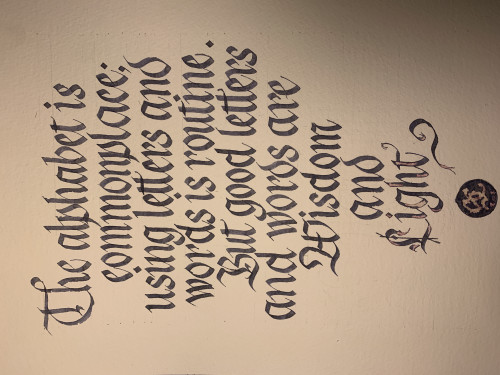 The alphabet is
commonplace;
using letters and
words is routine.
But good letters
and words are
Wisdom
and
Light